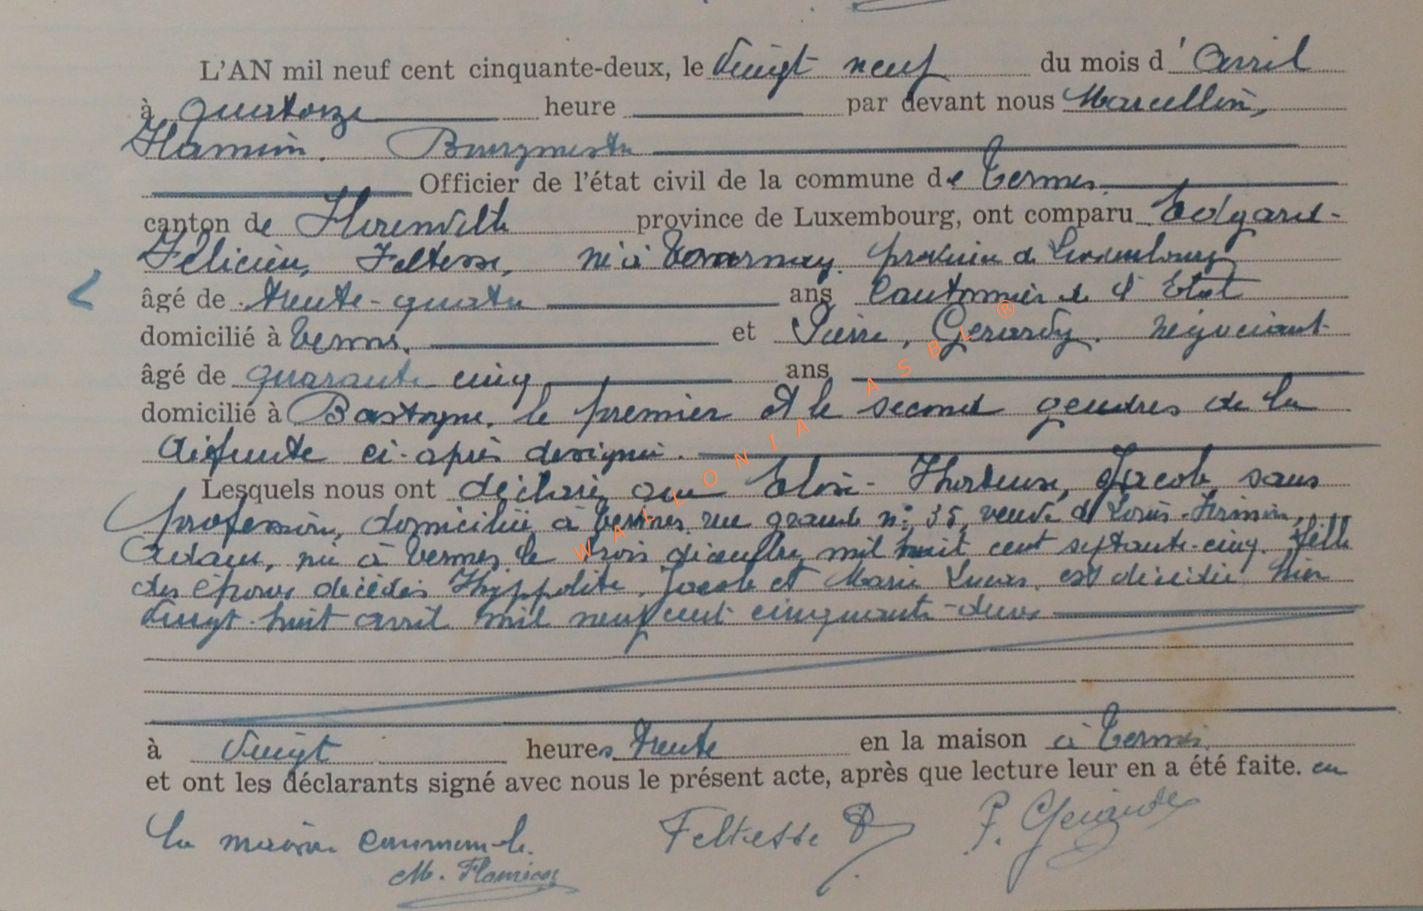 L'AN mil neuf cent cinquante-deux, le Vingt neuf du mois d' Avril
à quatorze heure par devant nous Marcellin,
Flamion. Bourgmestre
Officier de l'état civil de la commune de Termes.
canton de Florenville province de Luxembourg, ont comparu Edgard-
Félicien, Feltesse, né à province de Luxembourg
âgé de trente-quatre ans Cantonnier de l'Etat
domicilié à Termes. et Pierre, Gerardy. négociant
âgé de quarante cinq ans
domicilié à Bastogne. le premier et le second gendres de la
défunte ci-après désignée.
Lesquels nous ont déclaré que Eloïse-Hortense, Jacob sans
profession, domiciliée à Termes rue grande n° 35, veuve de Louis-Firmin,
née à Termes le trois décembre mil huit cent septante-cinq. fille
des époux décédés Hyppolite. Jacob et Marie Lucas. est décédée hier
vingt-huit avril mil neuf cent cinquante-deux
à Vingt heures trente en la maison à Termes.
et ont les déclarants signé avec nous le présent acte, après que lecture leur en a été faite. en
la maison communale.
Feltesse P. Gerardy
M. Flamion
WALLONIA ASBL ®